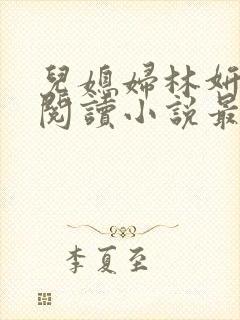 兒媳婦林妍
閱讀小說最
李夏至